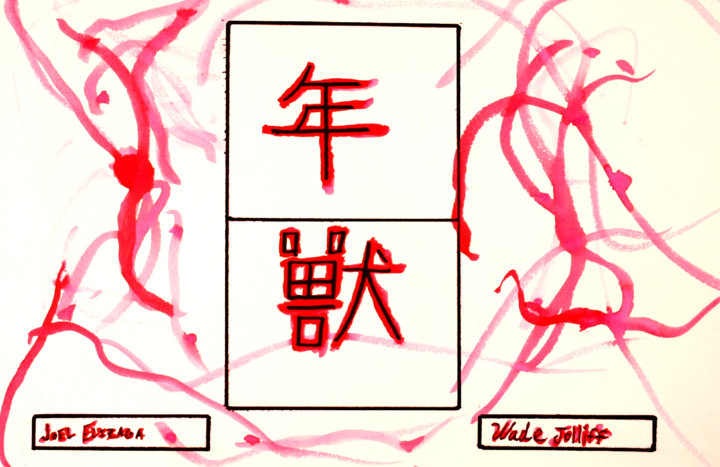 年
獸
JOEL ELIZAGA
Wade Jolliff